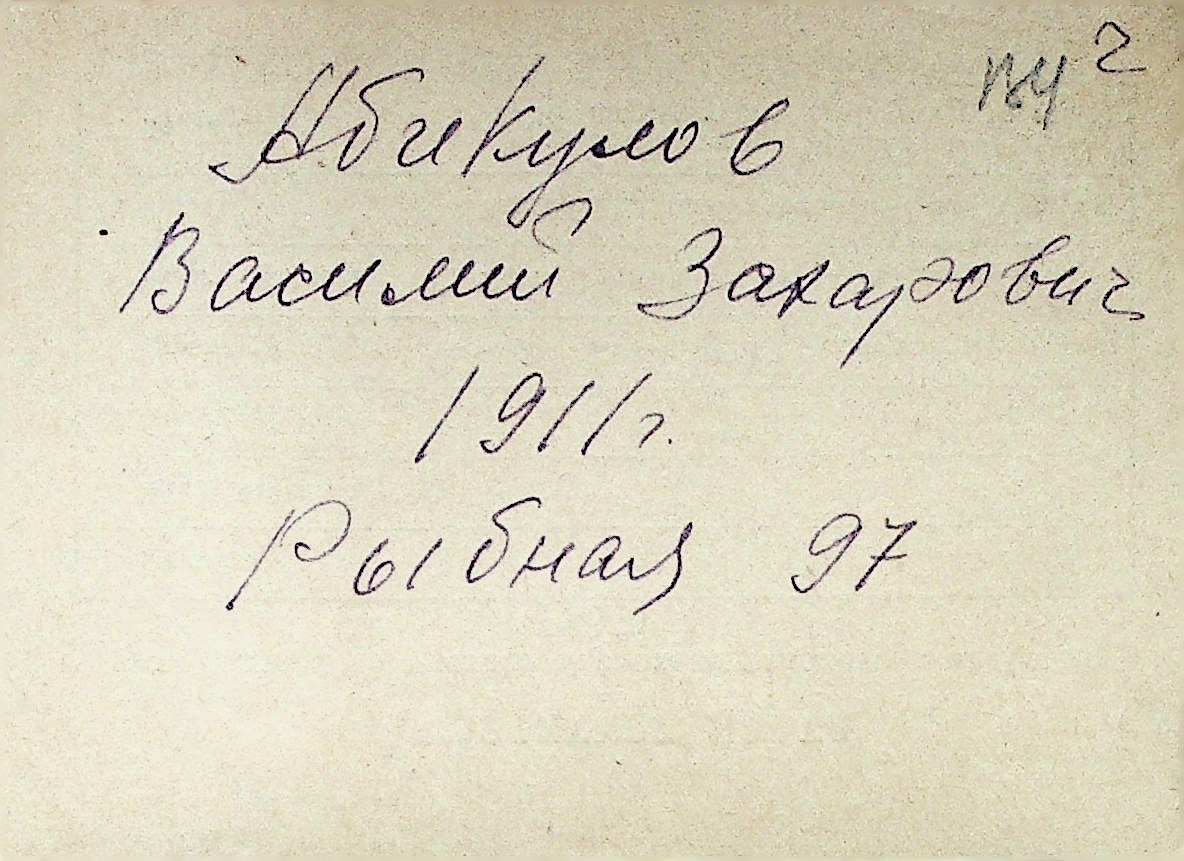 Абикулов
Василий Захарович
1911г.
Рыбная 97